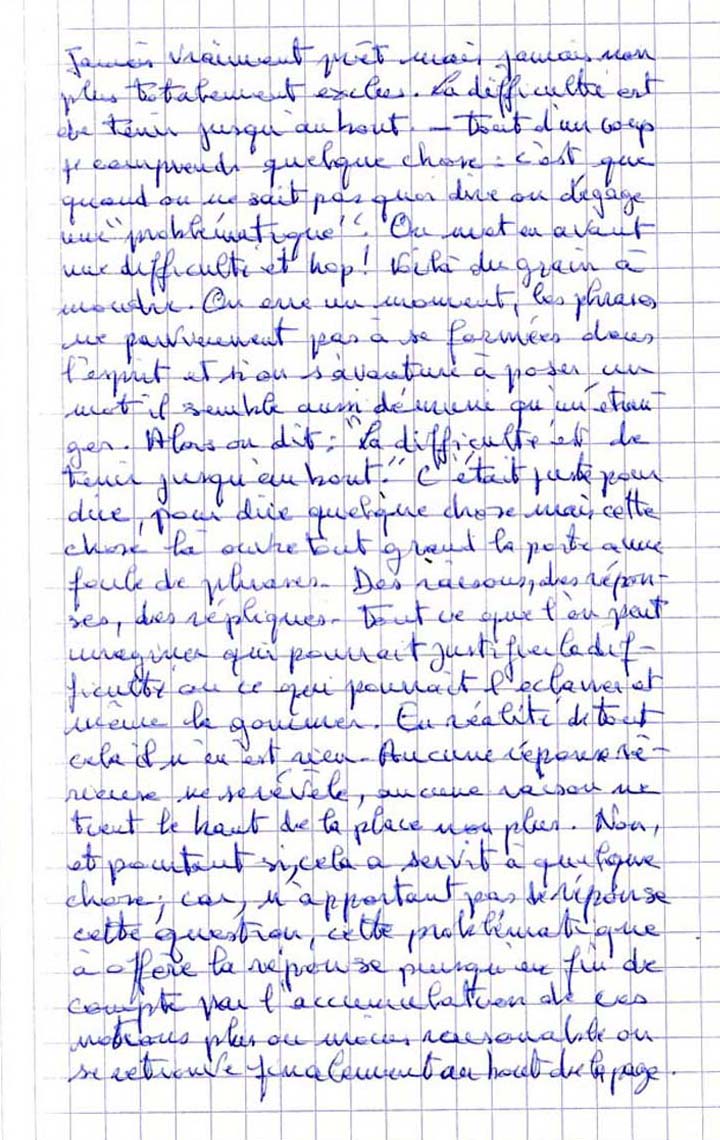 Jamais vraiment prêt mais jamais non
plus totalement exclue. La difficulté est
de tenir jusqu'au bout. – Tout d'un coup
je comprends quelque chose : c'est que
quand on ne sait pas quoi dire on dégage
une "problématique". On met en avant
une difficulté et hop ! Voilà du grain à
moudre. On erre un moment, les phrases
ne parviennent pas à se formées dans
l'esprit et si on s'aventure à poser un
mot il semble aussi démuni qu'un étran-
ger. Alors on dit : "La difficulté est de
tenir jusqu'au bout." C'était juste pour
dire, pour dire quelque chose mais cette
chose là ouvre tout grand la porte a une
foule de phrases. Des raisons, des répon-
ses, des répliques. Tout ce que l'on peut
imaginer qui pourrait justifier la dif-
ficulté ou ce qui pourrait l'éclairer et
même la gommer. En réalité de tout
cela il n'en est rien. Aucune réponse sé-
rieuse ne se révèle, aucune raison ne
tient le haut de la place non plus. Non,
et pourtant si, cela a servit à quelque
chose ; car, n'apportant pas de réponse
cette question, cette problématique
à offère la réponse puisqu'en fin de
compte par l'accumulation de ces
notions plus ou moins raisonable on
se retrouve finalement au bout de la page.